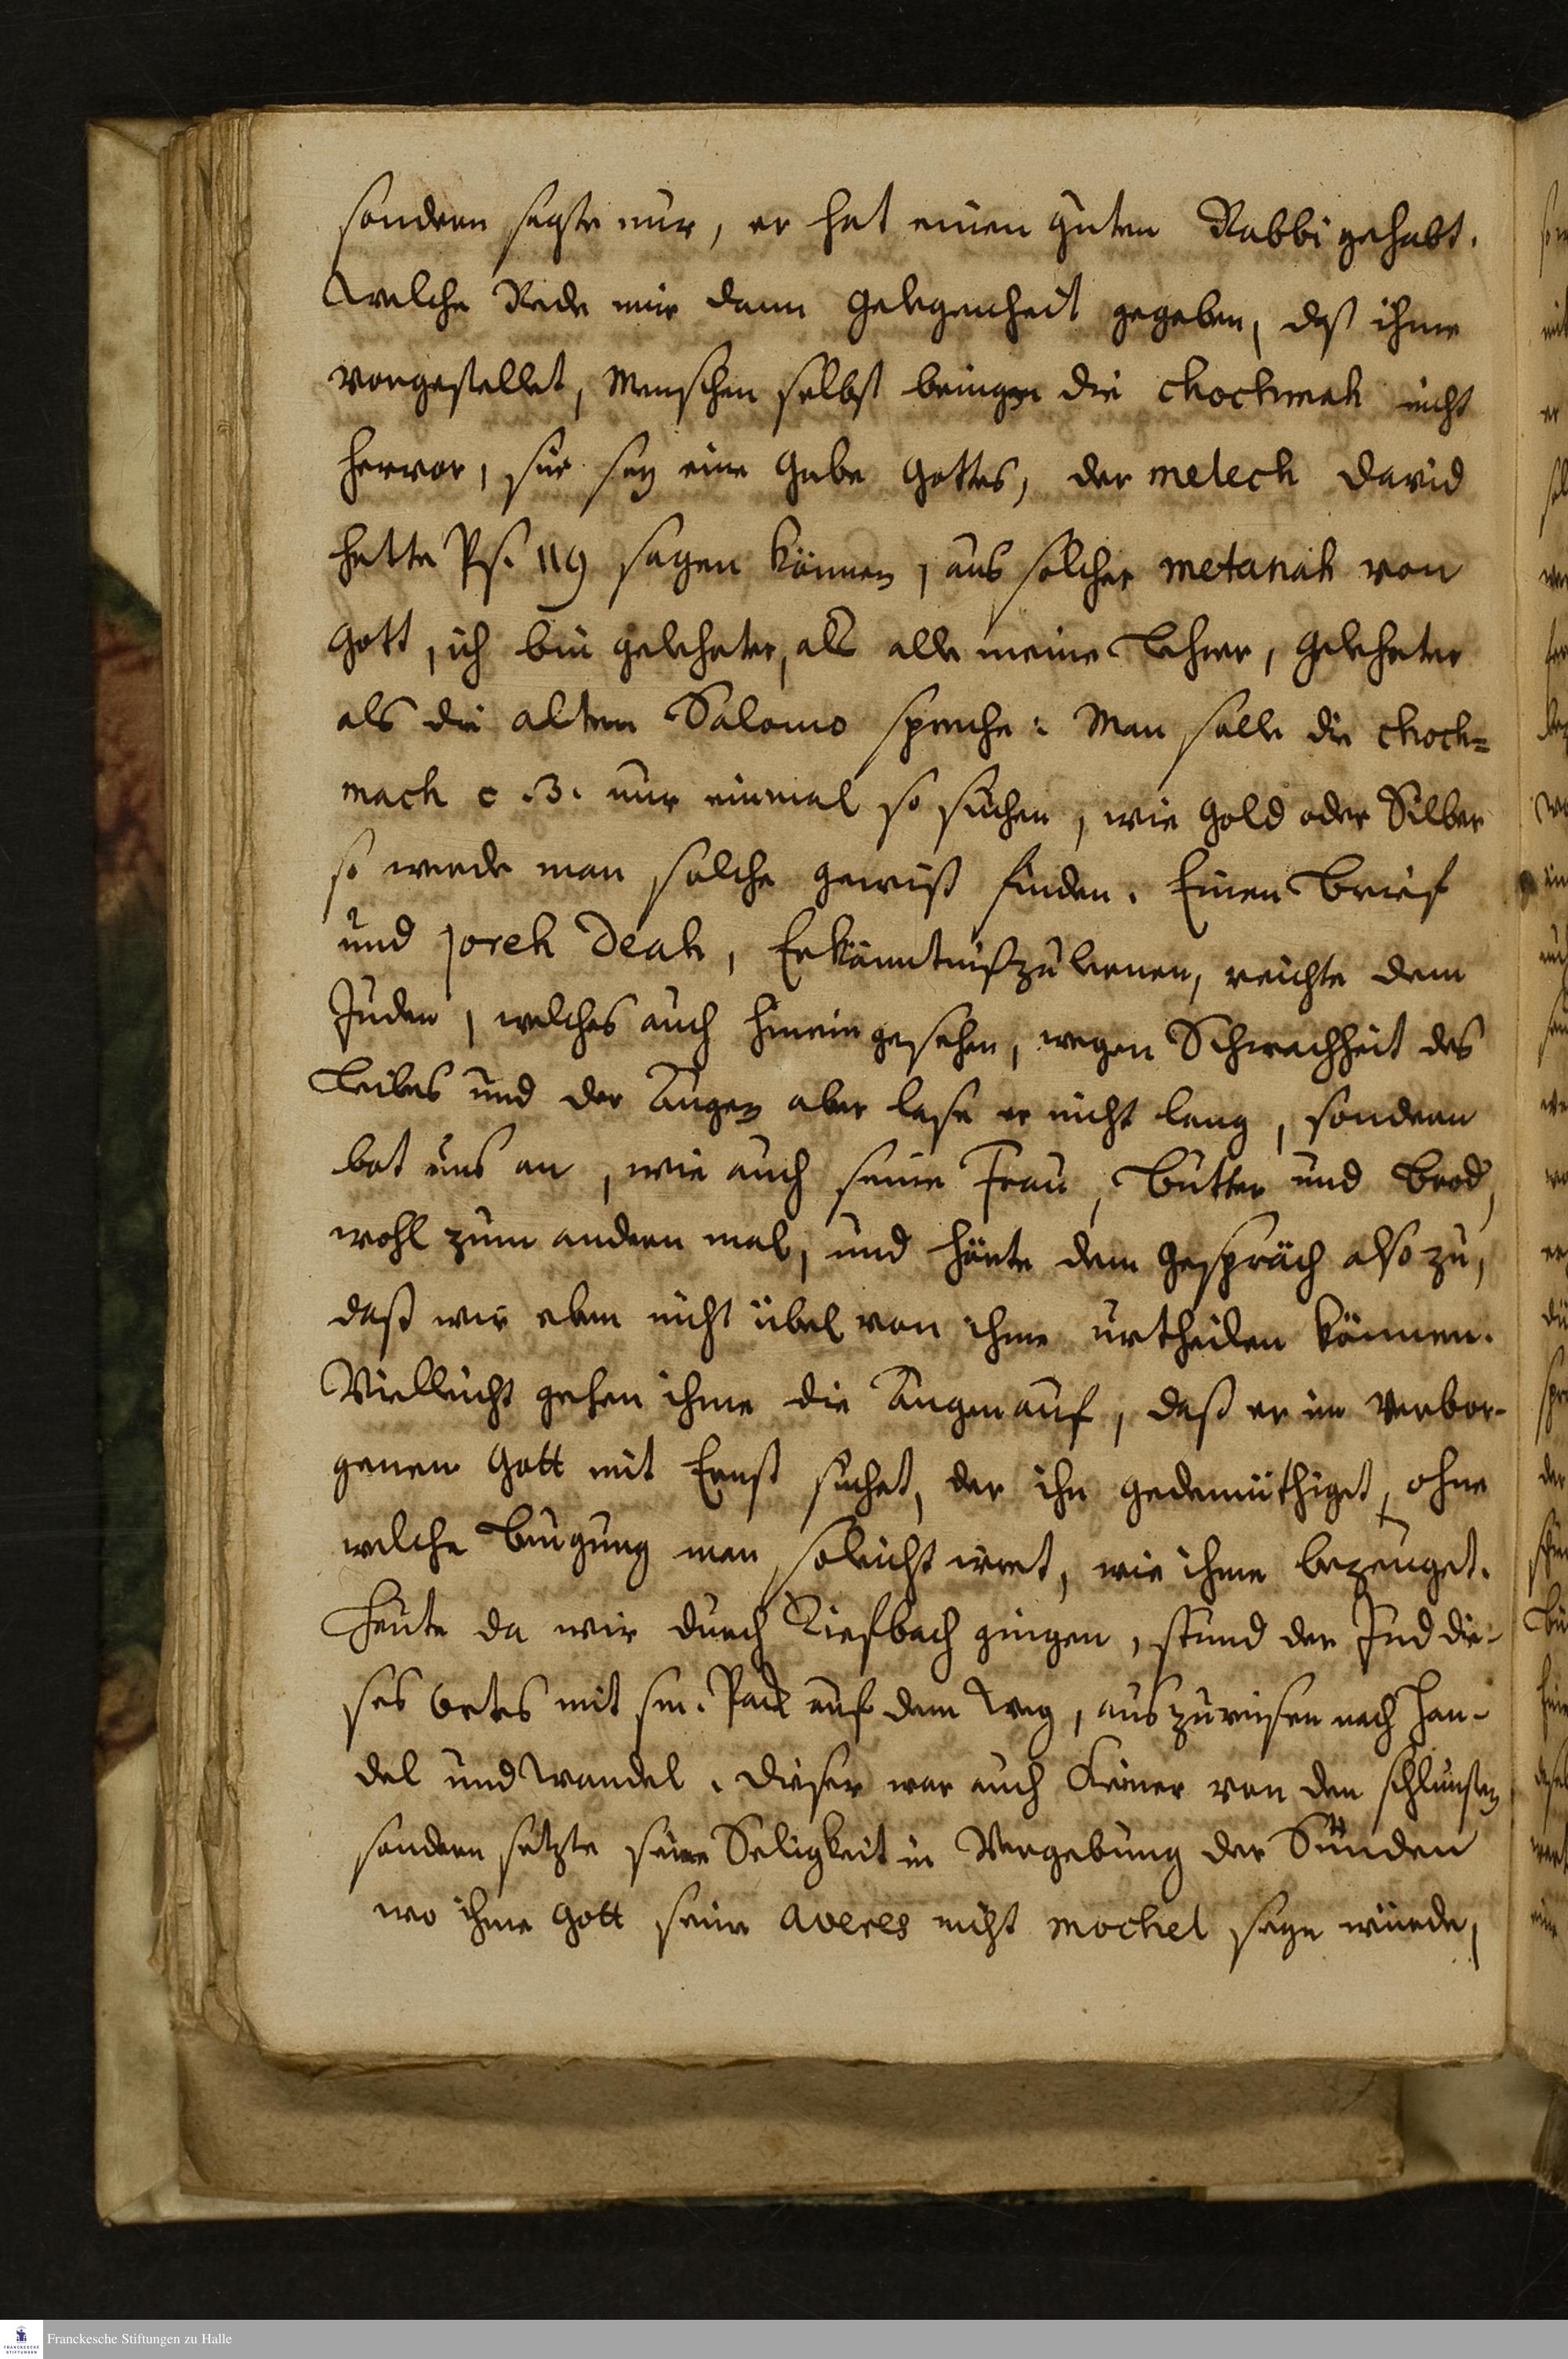 sondern sagte nur, er hat einen guten Rabbi gehabt.
Welche Rede mir dann Gelegenheit gegeben, daß ihme
vorgestellet, Menschen selbst bringen die chochmah nicht
hervor, sie sey eine Gabe Gottes, der melech David
hatte Ps. 119 sagen können, aus solcher metanah von
Gott, ich bin gelehrter, als alle meine Lehrer, gelehrter
als die alten Salomo spreche: Man solle die choch=
mach c. 3. nur einmal so suchen, wie Gold oder Silber
so werde man solche gewiß finden. Einen Brief
und joreh Deah, Erkänntniß zu lernen, reichte dem
Juden, welches auch hineingesehen, wegen Schwachheit des
Leibes und der Augen aber lase er nicht lang, sondern
bot uns an, wie auch seine Frau, Butter und Brod,
wohl zum andern mal, und hörte dem Gespräch also zu,
daß wir eben nicht übel von ihme urtheilen können.
Vielleicht gehen ihme die Augen auf, daß er im Verbor-
genen Gott mit Ernst suchet, der ihn gedemüthiget, ohne
welche Beugung man so leicht irret, wie ihme bezeuget.
Heute da wir durch Tiefbach gingen, stund der Jud die-
ses Ortes mit sm. Pack auf dem Weg, auszureisen nach Han-
del und Wandel. Dieser war auch Keiner von den schlimsten
sondern setzte seine Seligkeit in Vergebung der Sünden
wo ihme Gott seine averes nicht mochel seyn würde,
Franckesche Stiftungen zu Halle